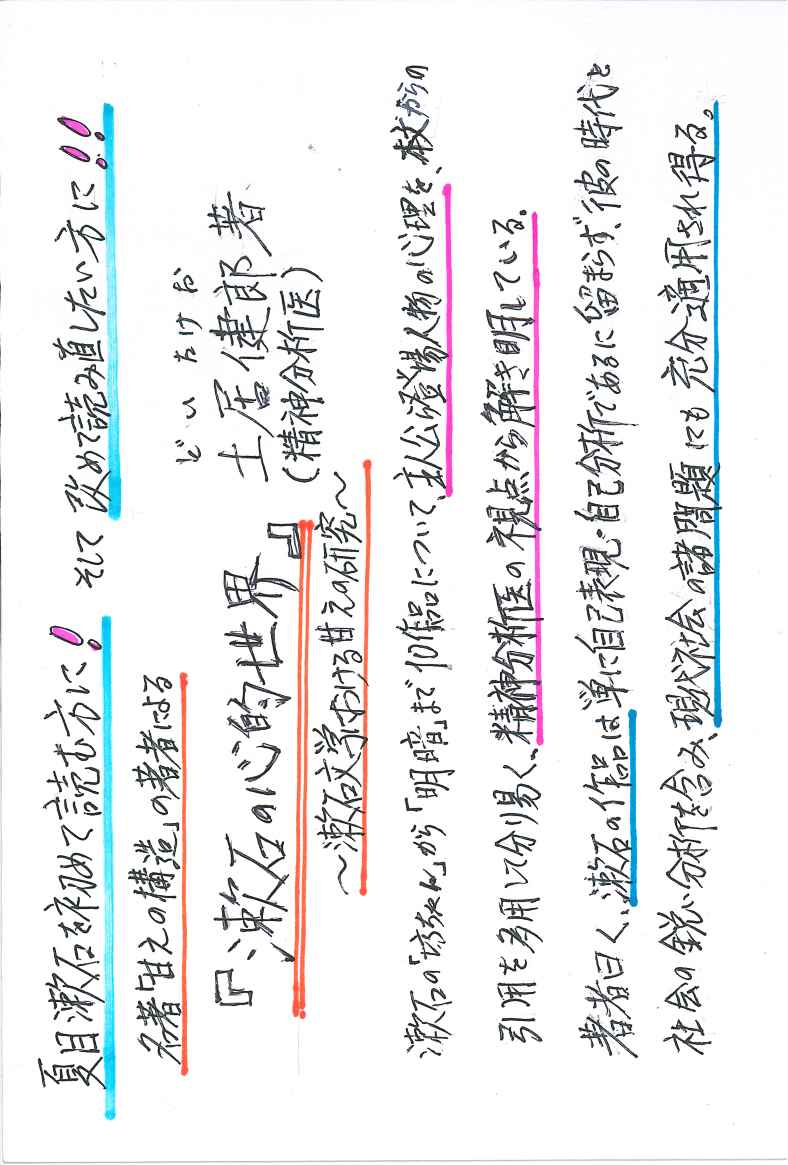 夏目漱石を初めて読む方に! そして 改めて読み直したい方に!!!
名著「甘えの構造」の著者による
『漱石の心的世界』
どいたけお
土居健郎 著
(精神分析医)
~漱石文学における甘えの研究~
漱石の「坊ちゃん」から「明暗」まで10作品について、主人公登場人物の心理を、本文からの
引用を多用して分り易く、精神分析医の視点から解き明している。
著者曰く、漱石の作品は単に自己表現・自己分析であるに留まらず、彼の時代と
社会の鋭い分析を含み、現代社会の諸問題にも充分適用され得る。